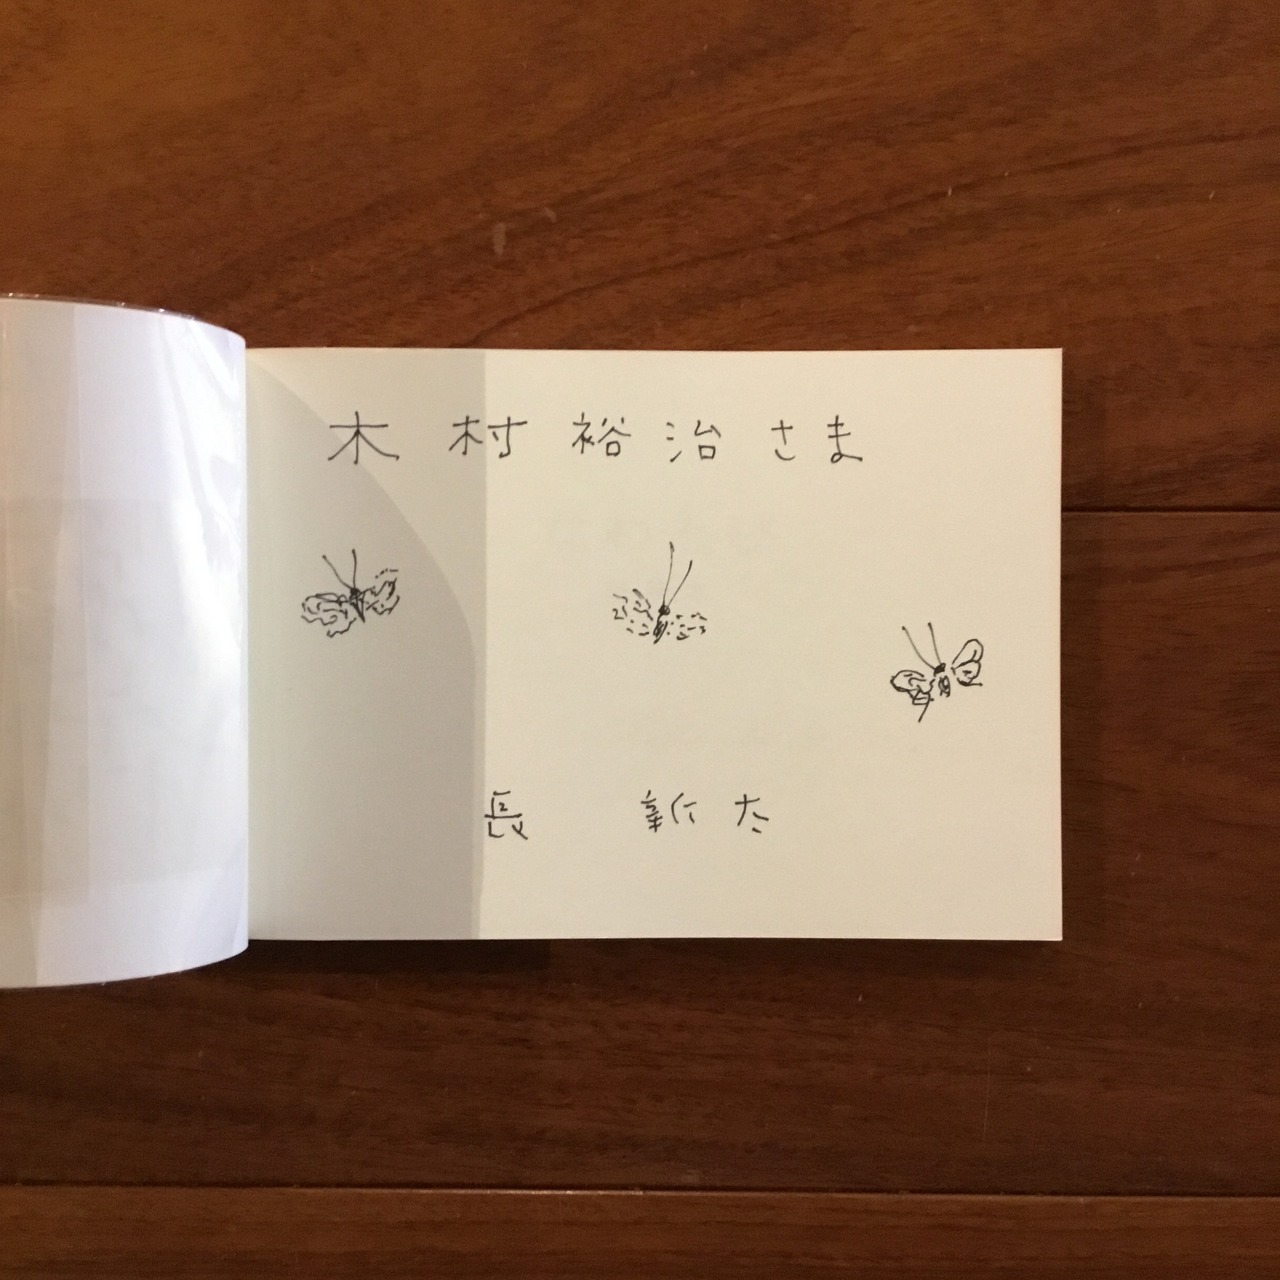 木村裕治さま
長 新太